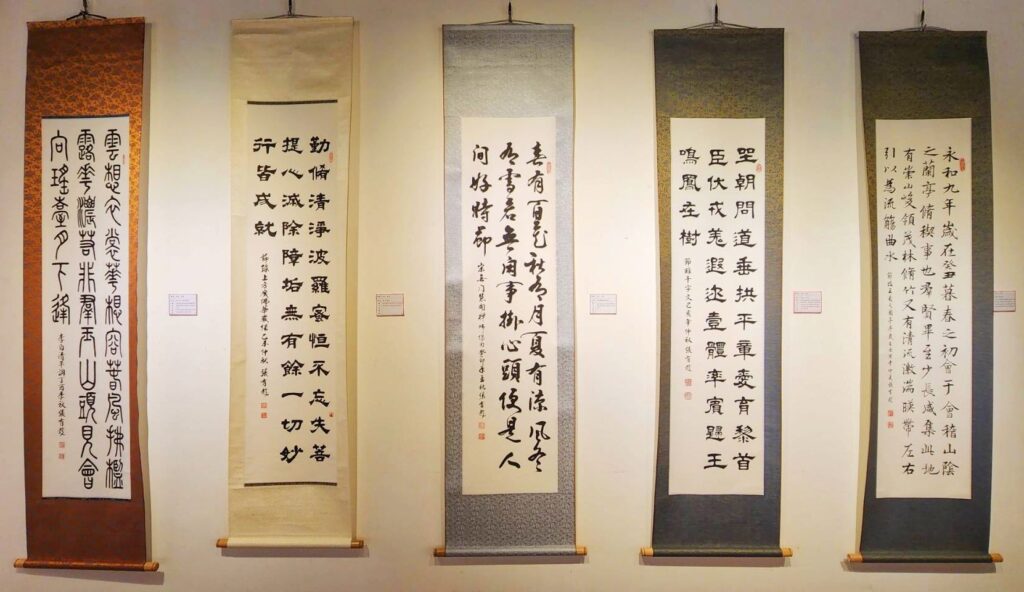 永和九年歲在癸丑暮春之初會于會稽山陰
之蘭亭脩稧事也羣賢畢至少長咸集此地
有崇山峻領茂林脩竹又有清流激湍暎帶左右
引以為流觴曲水
坐朝問道垂拱平章愛育黎首
臣伏戎羌遐迩壹體率賓歸王
鳴鳳在樹
春有百花秋有月夏有涼風冬
有雪若無閑事掛心頭便是人
間好時節
勤脩清淨波羅蜜恒不忘失菩
提心滅除障垢無有餘一切妙
行皆成就
雲想衣裳華想容春風拂檻
露華濃若非群玉山頭見會
向瑤臺月下逢
李白清平調